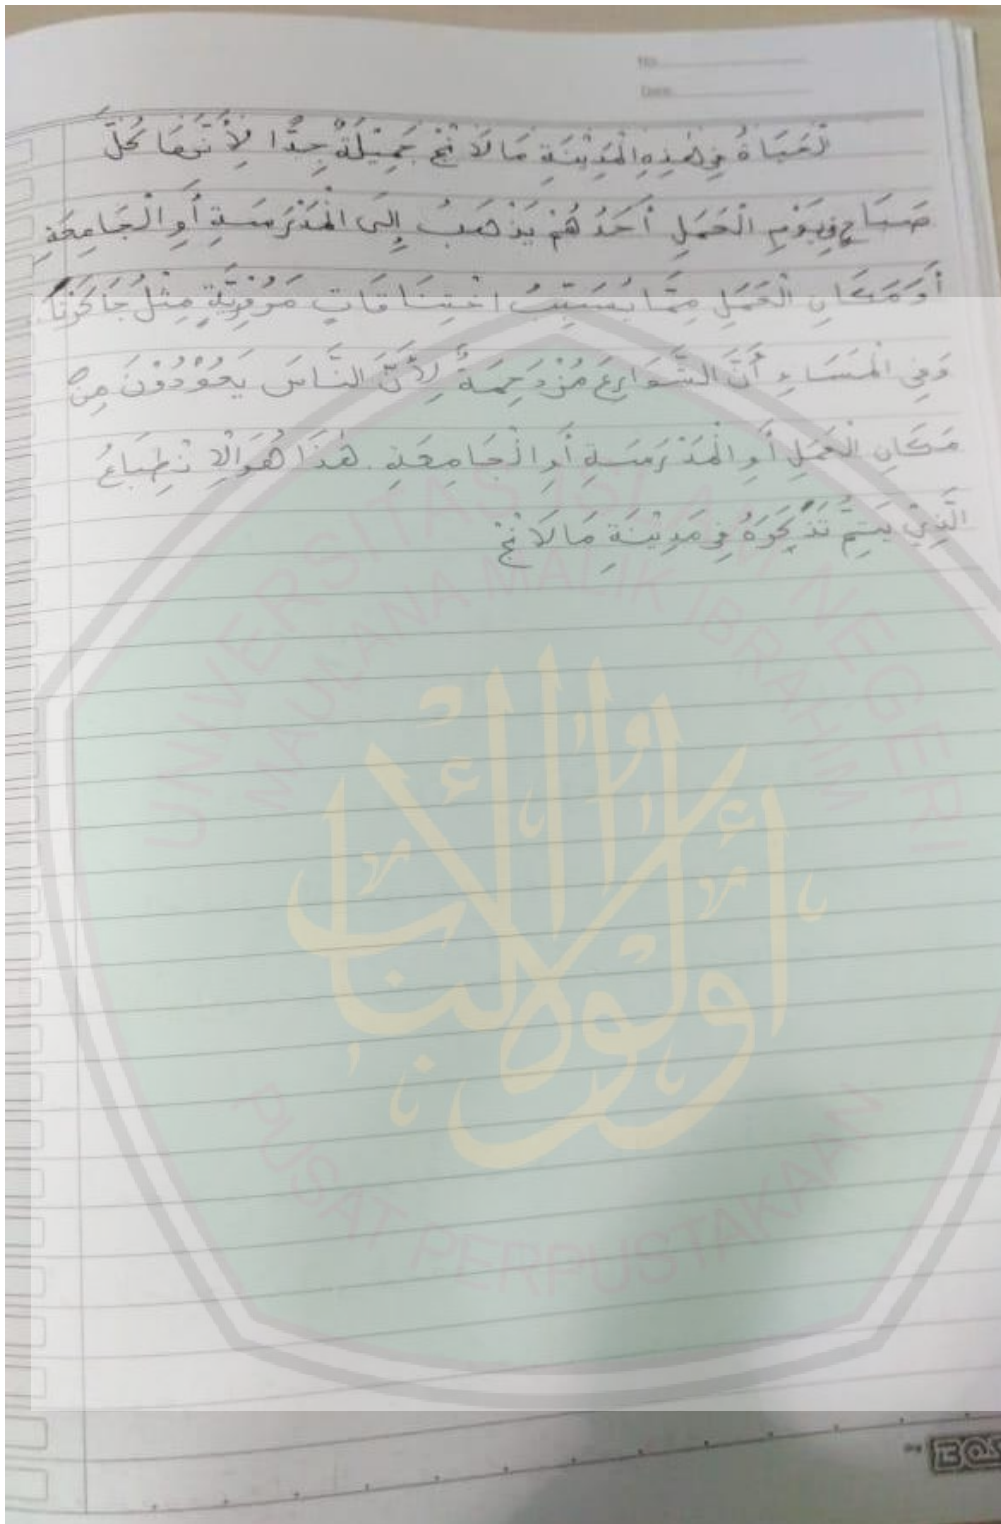 No
Date
لْحَيَاةُ فِي هٰذِهِ الْمَدِيْنَةِ مَالَانْجْ جَمِيْلَةٌ جِدًّا لِأَنَّهَا كُلَّ
صَبَاحٍ فِيْ يَوْمِ الْعَمَلِ أَحَدُهُمْ يَذْهَبُ إِلَى الْمَدْرَسَةِ أَوِ الْجَامِعَةِ
أَوْ مَكَانِ الْعَمَلِ مِمَّا يُسَبِّبُ اخْتِنَاقَاتٍ مَرُوْرِيَّةٍ مِثْلُ جَاكَرْتَا.
وَفِي الْمَسَاءِ أَنَّ الشَّوَارِعَ مُزْدَحِمَةً لِأَنَّ النَّاسَ يَعُوْدُوْنَ مِنْ
مَكَانِ الْعَمَلِ أَوِ الْمَدْرَسَةِ أَوِ الْجَامِعَةِ. هٰذَا هُوَ الْاِنْطِبَاعُ
الَّذِيْ يَتِمُّ تَذَكُّرُهُ فِي مَدِيْنَةِ مَالَانْجْ
UNIVERSITAS ISLAM NEGERI
MAULANA MALIK IBRAHIM
أولو الألباب
PUSAT PERPUSTAKAAN